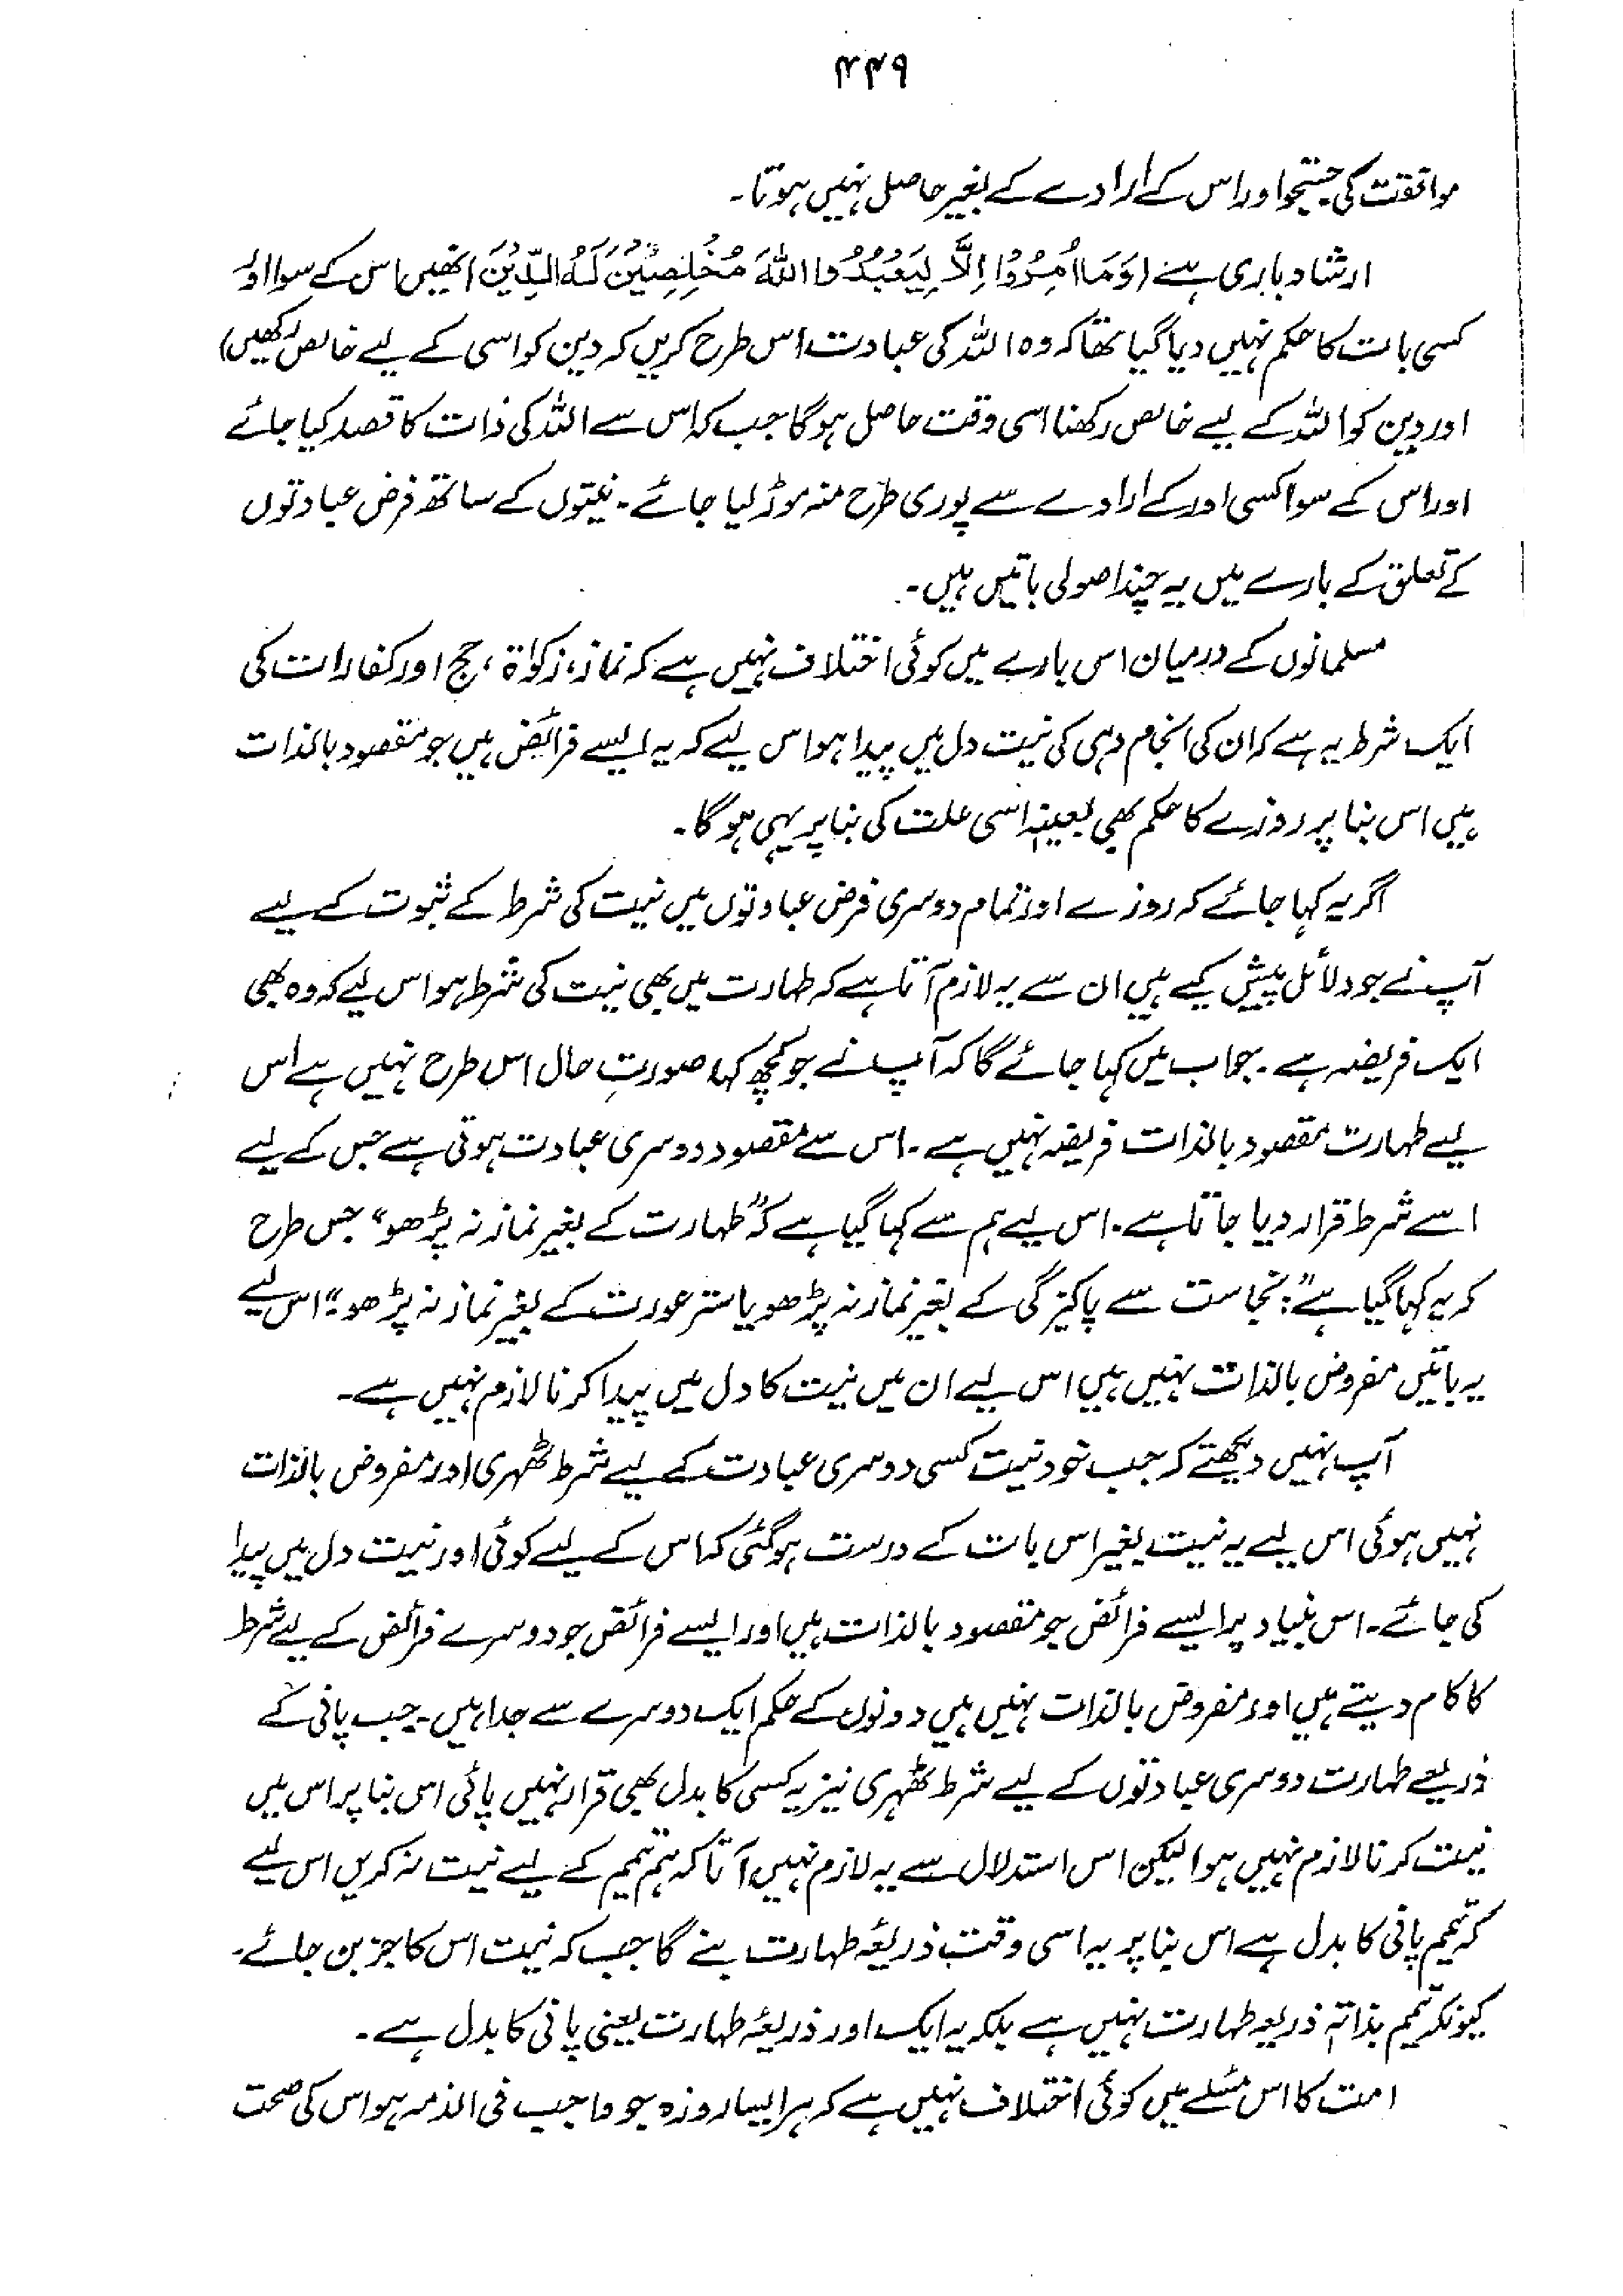 ۴۴۹
موافقت کی جستجو اور اس کے ارادے کے بغیر حاصل نہیں ہوتا۔
ارشاد باری ہے (وَمَا اُمِرُوْا اِلَّا لِيَعْبُدُوا اللّٰهَ مُخْلِصِيْنَ لَهُ الدِّيْنَ انھیں اس کے سوا اور
کسی بات کا حکم نہیں دیا گیا تھا کہ وہ اللہ کی عبادت اس طرح کریں کہ دین کو اسی کے لیے خالص رکھیں)
اور دین کو اللہ کے لیے خالص رکھنا اسی وقت حاصل ہوگا جب کہ اس سے اللہ کی ذات کا قصد کیا جائے
اور اس کے سوا کسی اور کے ارادے سے پوری طرح منہ موڑ لیا جائے۔ نیتوں کے ساتھ فرض عبادتوں
کے تعلق کے بارے میں یہ چند اصولی باتیں ہیں۔
مسلمانوں کے درمیان اس بارے میں کوئی اختلاف نہیں ہے کہ نماز، زکوٰۃ، حج اور کفارات کی
ایک شرط یہ ہے کہ ان کی انجام دہی کی نیت دل میں پیدا ہو اس لیے کہ یہ ایسے فرائض ہیں جو مقصود بالذات
ہیں اس بنا پر روزے کا حکم بھی بعینہٖ اسی علت کی بنا پر یہی ہوگا۔
اگر یہ کہا جائے کہ روزے اور تمام دوسری فرض عبادتوں میں نیت کی شرط کے ثبوت کے لیے
آپ نے جو دلائل پیش کیے ہیں ان سے یہ لازم آتا ہے کہ طہارت میں بھی نیت کی شرط ہو اس لیے کہ وہ بھی
ایک فریضہ ہے۔ جواب میں کہا جائے گا کہ آپ نے جو کچھ کہا صورتِ حال اس طرح نہیں ہے اس
لیے طہارت مقصود بالذات فریضہ نہیں ہے۔ اس سے مقصود دوسری عبادت ہوتی ہے جس کے لیے
اسے شرط قرار دیا جاتا ہے۔ اس لیے ہم سے کہا گیا ہے کہ "طہارت کے بغیر نماز نہ پڑھو" جس طرح
کہ یہ کہا گیا ہے: "نجاست سے پاکیزگی کے بغیر نماز نہ پڑھو یا ستر عورت کے بغیر نماز نہ پڑھو" اس لیے
یہ باتیں مفروض بالذات نہیں ہیں اس لیے ان میں نیت کا دل میں پیدا کرنا لازم نہیں ہے۔
آپ نہیں دیکھتے کہ جب خود نیت کسی دوسری عبادت کے لیے شرط ٹھہری اور مفروض بالذات
نہیں ہوئی اس لیے یہ نیت بغیر اس بات کے درست ہوگئی کہ اس کے لیے کوئی اور نیت دل میں پیدا
کی جائے۔ اس بنیاد پر ایسے فرائض جو مقصود بالذات ہیں اور ایسے فرائض جو دوسرے فرائض کے لیے شرط
کا کام دیتے ہیں اور مفروض بالذات نہیں ہیں دونوں کے حکم ایک دوسرے سے جدا ہیں۔ جب پانی کے
ذریعے طہارت دوسری عبادتوں کے لیے شرط ٹھہری نیز یہ کسی کا بدل بھی قرار نہیں پائی اس بنا پر اس میں
نیت کرنا لازم نہیں ہوا لیکن اس استدلال سے یہ لازم نہیں آتا کہ ہم تیمم کے لیے نیت نہ کریں اس لیے
کہ تیمم پانی کا بدل ہے اس بنا پر یہ اسی وقت ذریعۂ طہارت بنے گا جب کہ نیت اس کا جز بن جائے۔
کیونکہ تیمم بذاتہٖ ذریعہ طہارت نہیں ہے بلکہ یہ ایک اور ذریعۂ طہارت یعنی پانی کا بدل ہے۔
امت کا اس مسٔلے میں کوئی اختلاف نہیں ہے کہ ہر ایسا روزہ جو واجب فی الذمہ ہو اس کی صحت